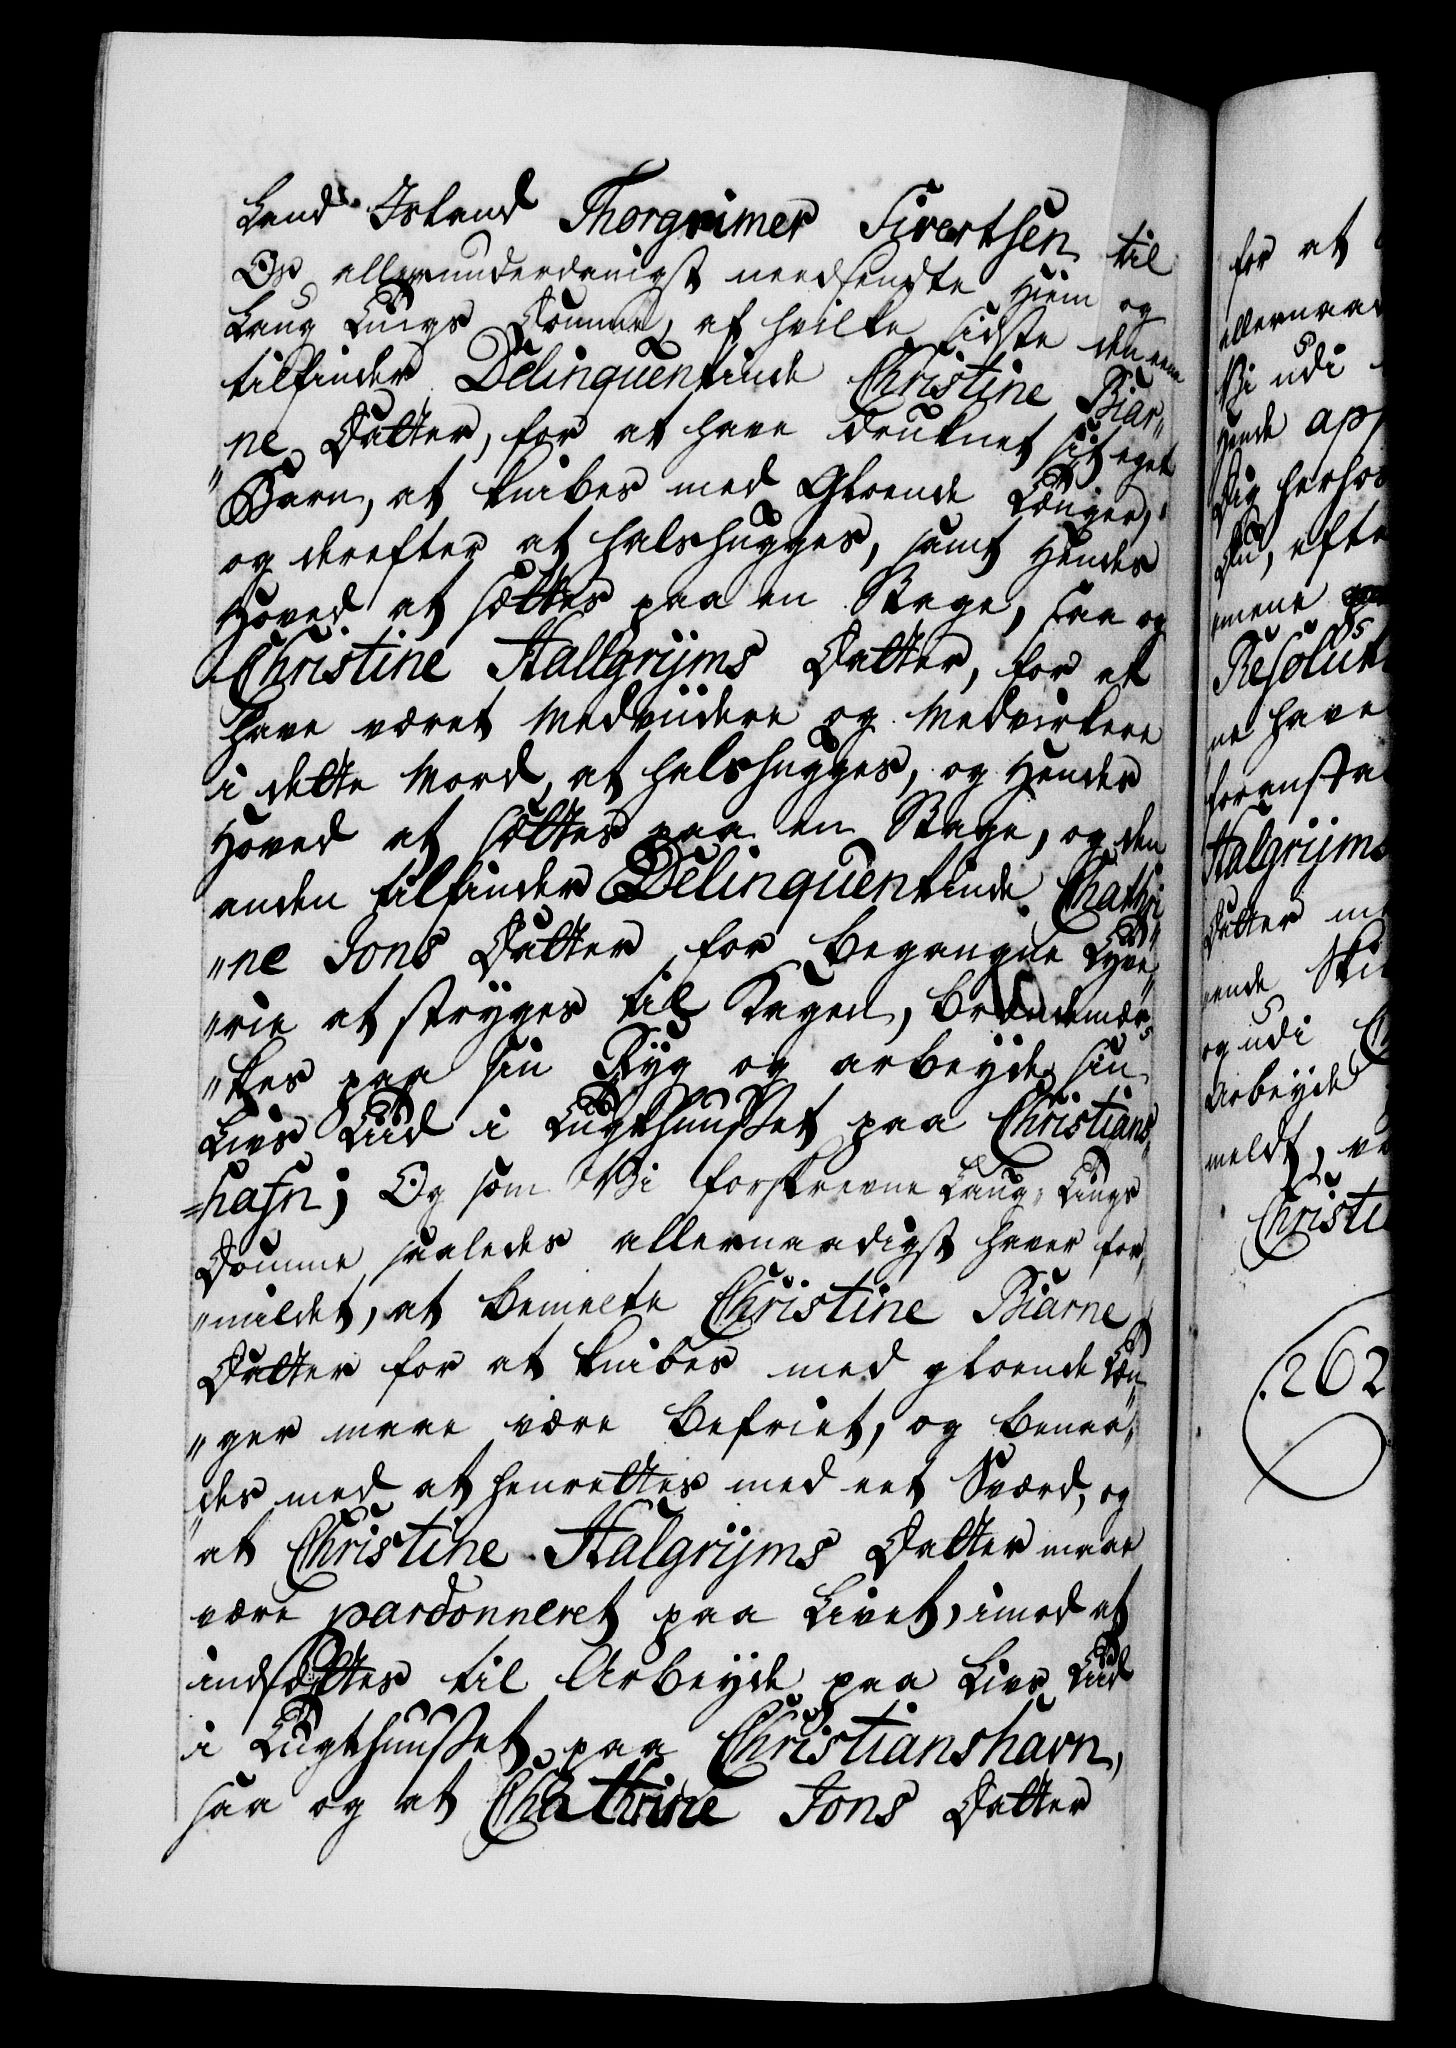 Land Island Thorgrimer Sivertsen til
Os allerunderdanigst needsendte Hiem og
Laug Tings Domme, af hvilke sidste den eene
tilfinder Delinquentinde Christine Biar„
„ne Datter, for at have druknet sit eget
Barn, at knibes med Gloende Tænger,
og derefter at halshugges, samt Hendes
Hoved at sættes paa en Stage, saa og
Christine Hallgrijms Datter, for at
have været Medviidere og Medvirkere
i dette Mord, at halshugges, og Hendes
Hoved at sættes paa en Stage, og den
anden tilfinder Delinquentinde Chathri
„ne Jons Datter for begangne Tyve„
„rie at stryges til Kagen, brændemær„
„kes paa sin Ryg og arbeyde sin
Livs Tiid i Tugthuusset paa Christians„
=hafn; Og som Vi forskrevne Laug-Tings
Domme saaledes allernaadigst haver for„
„mildet, at bemelte Christine Biarne
Datter for at knibes med gloende Tæn„
„ger maae være befriet, og benaa„
„des med at henrettes med eet Sværd, og
at Christine Halgrijms Datter maae
være pardonneret paa Livet, imod at
indsættes til Arbeyde paa Livs Tiid
i Tugthuusset paa Christianshavn,
saa og at Chathrine Jons Datter
for at
allernaad
Vi udi
Hende app
Dig herhos
Du, efte
mene
Resolut
ne have
foranstal
Halgrijms
Datter m
ende Ski
og udi C
Arbeyde
meldt, ve
Christi
262